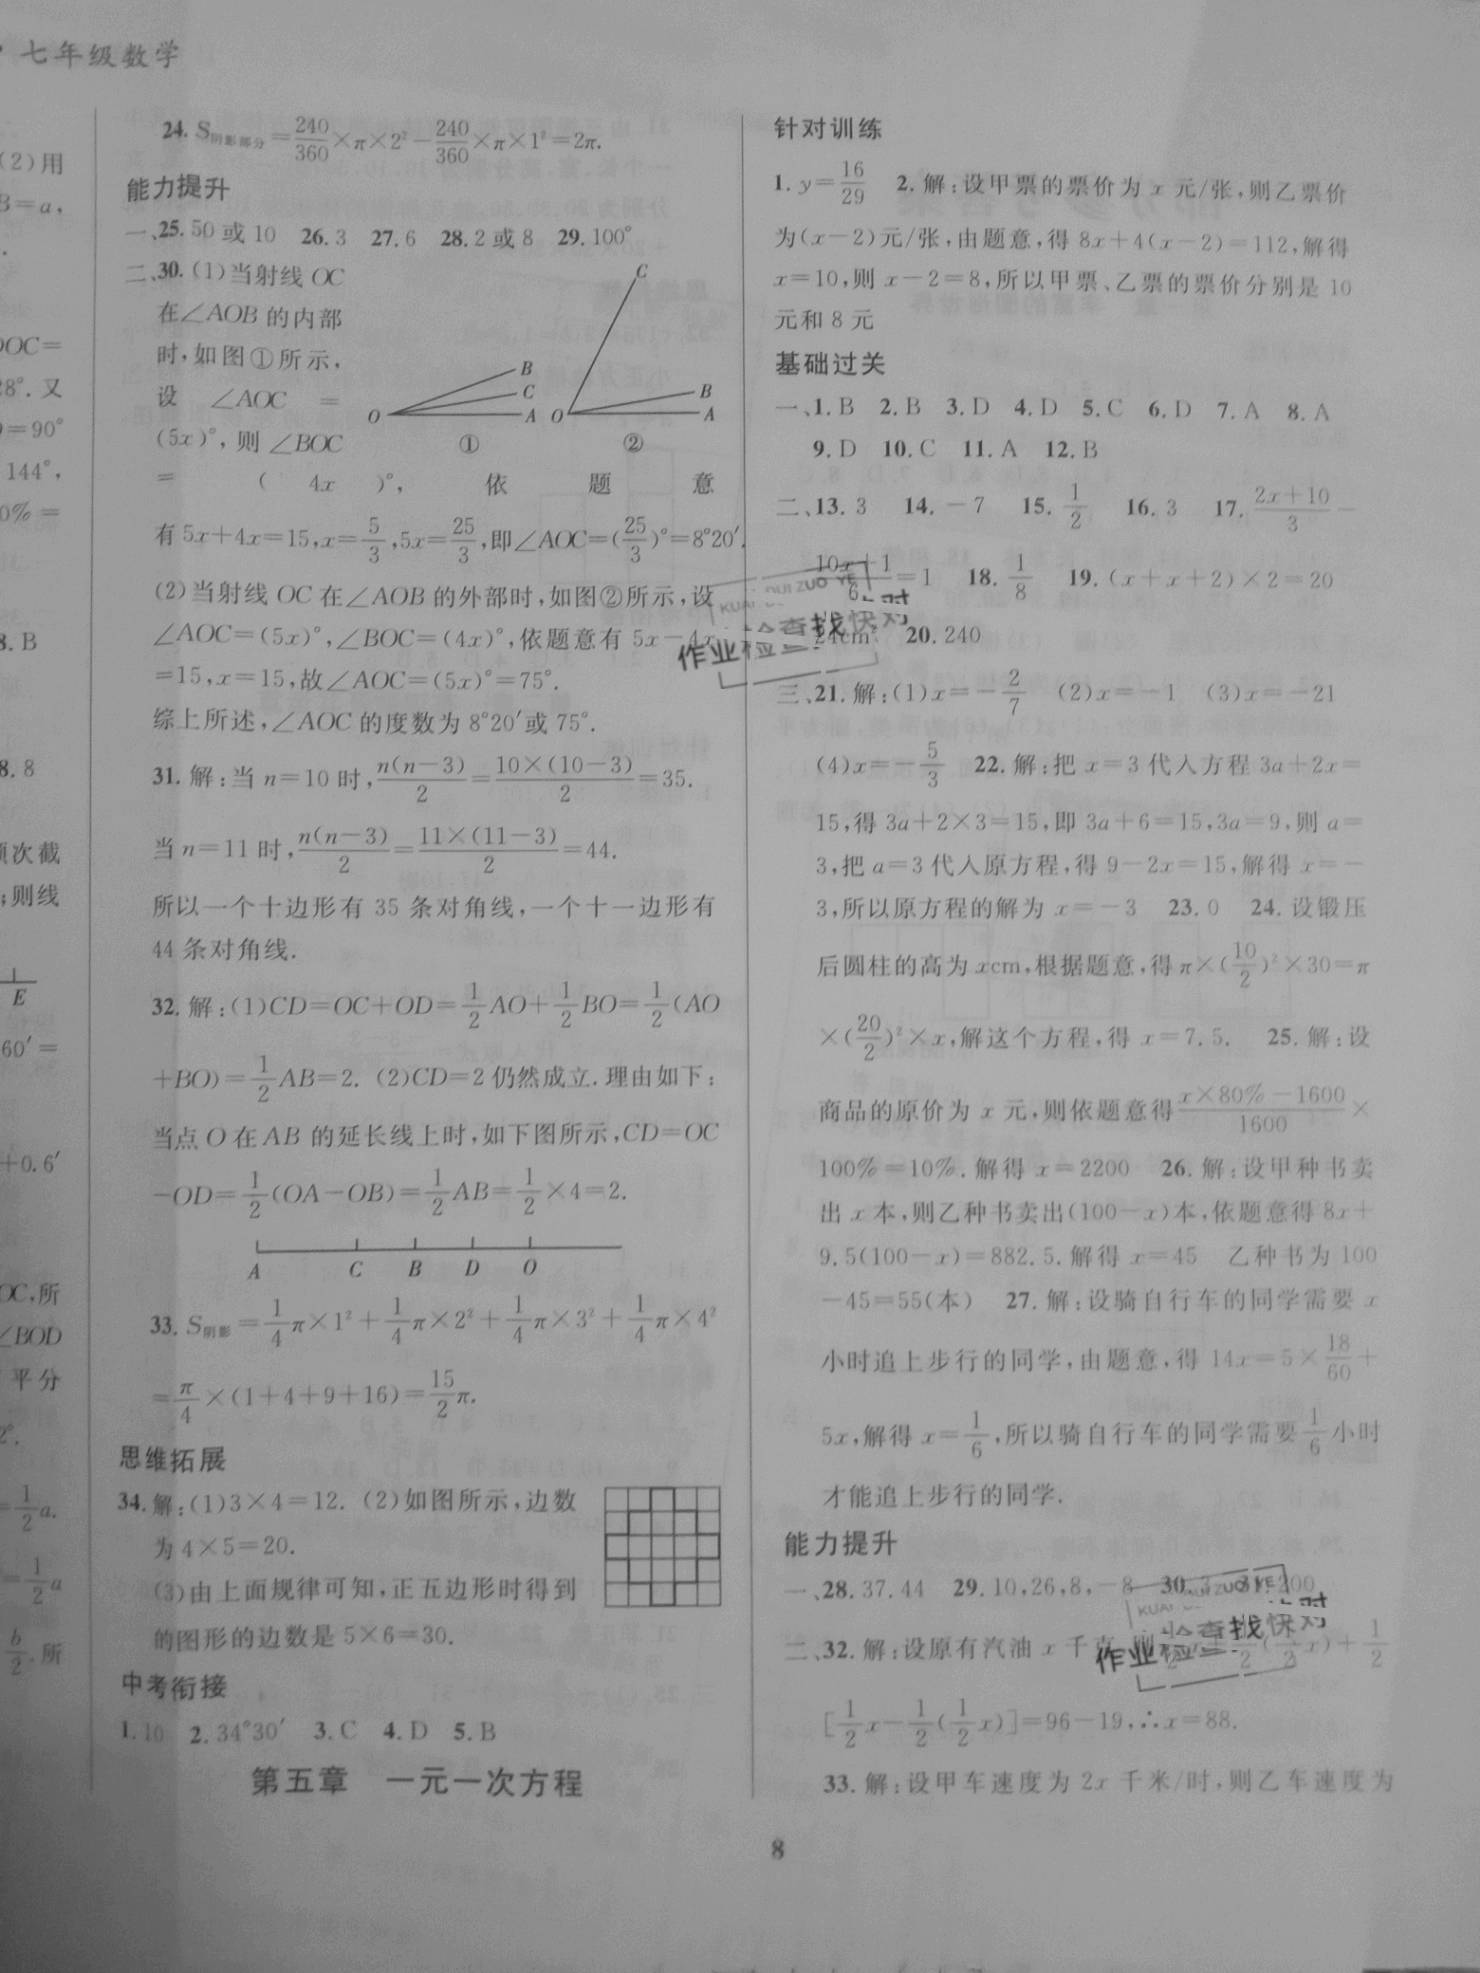 七年级数学
(2)用
B=a,
OC=
28°.又
=90°
144°,
0%=
8. B
8. 8
顺次截
;则线
E
60′=
+0.6′
OC,所
∠BOD
平分
2°.
=1/2a.
=1/2a
b/2.所
24. S阴影部分=240/360×π×2²-240/360×π×1²=2π.
能力提升
一、25. 50或10 26. 3 27. 6 28. 2或8 29. 100°
二、30. (1)当射线OC
在∠AOB的内部
时,如图①所示,
设 ∠AOC =
(5x)°,则∠BOC
= ( 4x )°, 依 题 意
O A C B ①
O A B C ②
有5x+4x=15,x=5/3,5x=25/3,即∠AOC=(25/3)°=8°20′.
(2)当射线OC在∠AOB的外部时,如图②所示,设
∠AOC=(5x)°,∠BOC=(4x)°,依题意有 5x-4x
=15,x=15,故∠AOC=(5x)°=75°.
综上所述,∠AOC的度数为8°20′或75°.
31. 解:当n=10时,n(n-3)/2=10×(10-3)/2=35.
当n=11时,n(n-3)/2=11×(11-3)/2=44.
所以一个十边形有 35 条对角线,一个十一边形有
44条对角线.
32. 解:(1)CD=OC+OD=1/2AO+1/2BO=1/2(AO
+BO)=1/2AB=2. (2)CD=2仍然成立.理由如下:
当点O在AB的延长线上时,如下图所示,CD=OC
-OD=1/2(OA-OB)=1/2AB=1/2×4=2.
A C B D O
33. S阴影=1/4π×1²+1/4π×2²+1/4π×3²+1/4π×4²
=π/4×(1+4+9+16)=15/2π.
思维拓展
34. 解:(1)3×4=12. (2)如图所示,边数
为4×5=20.
(3)由上面规律可知,正五边形时得到
的图形的边数是5×6=30.
中考衔接
1. 10 2. 34°30′ 3. C 4. D 5. B
第五章 一元一次方程
针对训练
1. y=16/29 2. 解:设甲票的票价为x元/张,则乙票价
为(x-2)元/张,由题意,得8x+4(x-2)=112,解得
x=10,则x-2=8,所以甲票、乙票的票价分别是10
元和8元
基础过关
一、1. B 2. B 3. D 4. D 5. C 6. D 7. A 8. A
9. D 10. C 11. A 12. B
二、13. 3 14. -7 15. 1/2 16. 3 17. (2x+10)/3-
(10x+1)/6=1 18. 1/8 19. (x+x+2)×2=20
24cm² 20. 240
三、21. 解:(1)x=-2/7 (2)x=-1 (3)x=-21
(4)x=-5/3 22. 解:把x=3代入方程3a+2x=
15,得3a+2×3=15,即3a+6=15,3a=9,则a=
3,把a=3代入原方程,得9-2x=15,解得x=-
3,所以原方程的解为x=-3 23. 0 24. 设锻压
后圆柱的高为xcm,根据题意,得π×(10/2)²×30=π
×(20/2)²×x,解这个方程,得x=7.5. 25. 解:设
商品的原价为x元,则依题意得(x×80%-1600)/1600×
100%=10%.解得x=2200 26. 解:设甲种书卖
出x本,则乙种书卖出(100-x)本,依题意得8x+
9.5(100-x)=882.5.解得x=45 乙种书为100
-45=55(本) 27. 解:设骑自行车的同学需要x
小时追上步行的同学,由题意,得14x=5×18/60+
5x,解得x=1/6,所以骑自行车的同学需要1/6小时
才能追上步行的同学.
能力提升
一、28. 37.44 29. 10,26,8,-8 30. 3 31. 200
二、32. 解:设原有汽油x千克,
[1/2x-1/2(1/2x)]=96-19,∴x=88.
33. 解:设甲车速度为2x千米/时,则乙车速度为
作业检查找快对
作业检查找快对
8